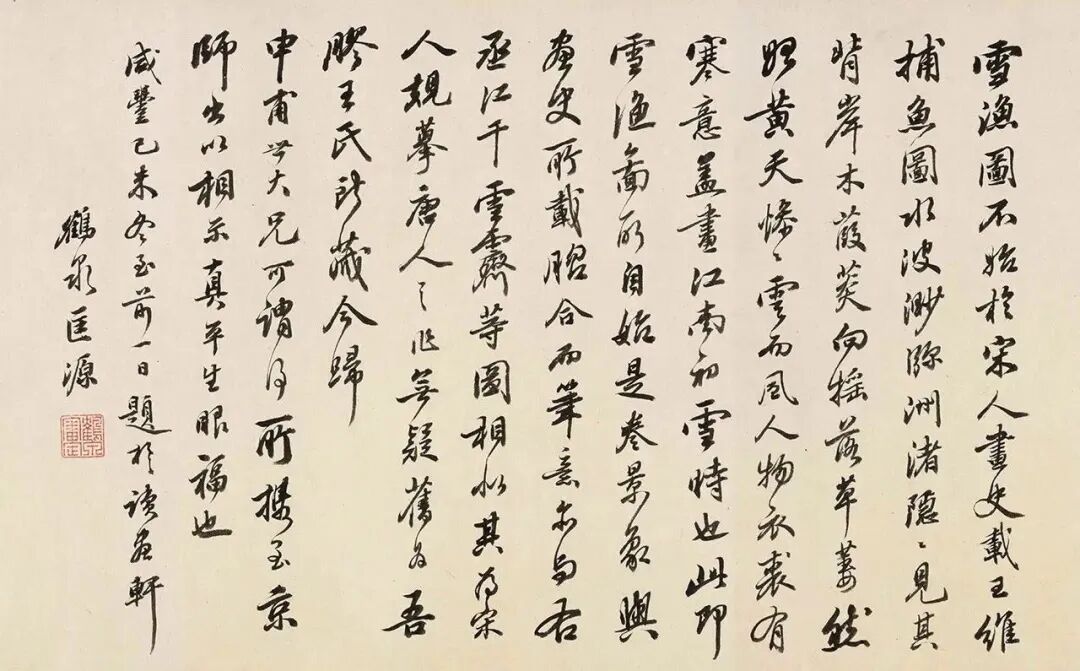 雪漁圖不始於宋人畫史載王維
捕魚圖水波渺瀰洲渚隱〻見其
背岸木葭菼向摇落草萋然
始黄天慘〻雲而風人物衣裘有
寒意盖畫江南初雪時也此即
雪漁圖所自始是卷景象與
畫史所載脗合而筆意亦與右
丞江干雪霽等圖相似其為宋
人規摹唐人之作無疑舊為吾
膠王氏所藏今歸
申甫世大兄可謂得所携至京
師出以相示真平生眼福也
咸豐己未冬至前一日題於讀畫軒
鶴泉匡源